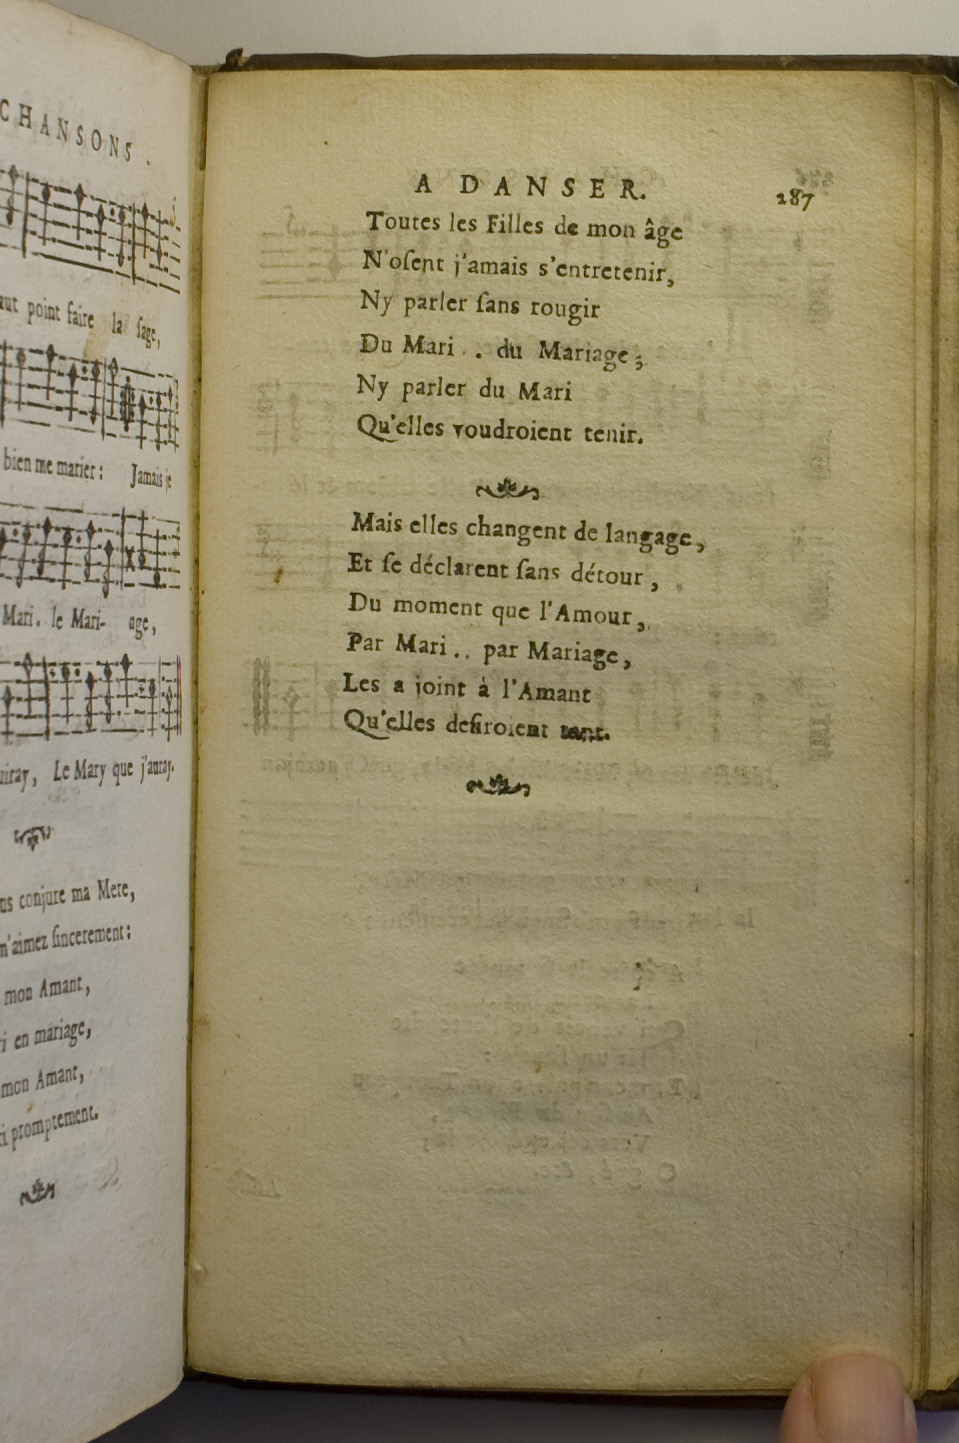 CHANSONS.
point faire la sage,
bien me marier : Jamais je
Mari. le Mari- age,
Le Mary que j'auray.
conjure ma Mere,
m'aimez sincerement :
mon Amant,
en mariage,
mon Amant,
promptement.
A DANSER. 187
Toutes les Filles de mon âge
N'oſent j'amais s'entretenir,
Ny parler ſans rougir
Du Mari . . du Mariage ;
Ny parler du Mari
Qu'elles voudroient tenir.
Mais elles changent de langage,
Et ſe déclarent ſans détour,
Du moment que l'Amour,
Par Mari . . par Mariage,
Les a joint à l'Amant
Qu'elles deſiroient tant.